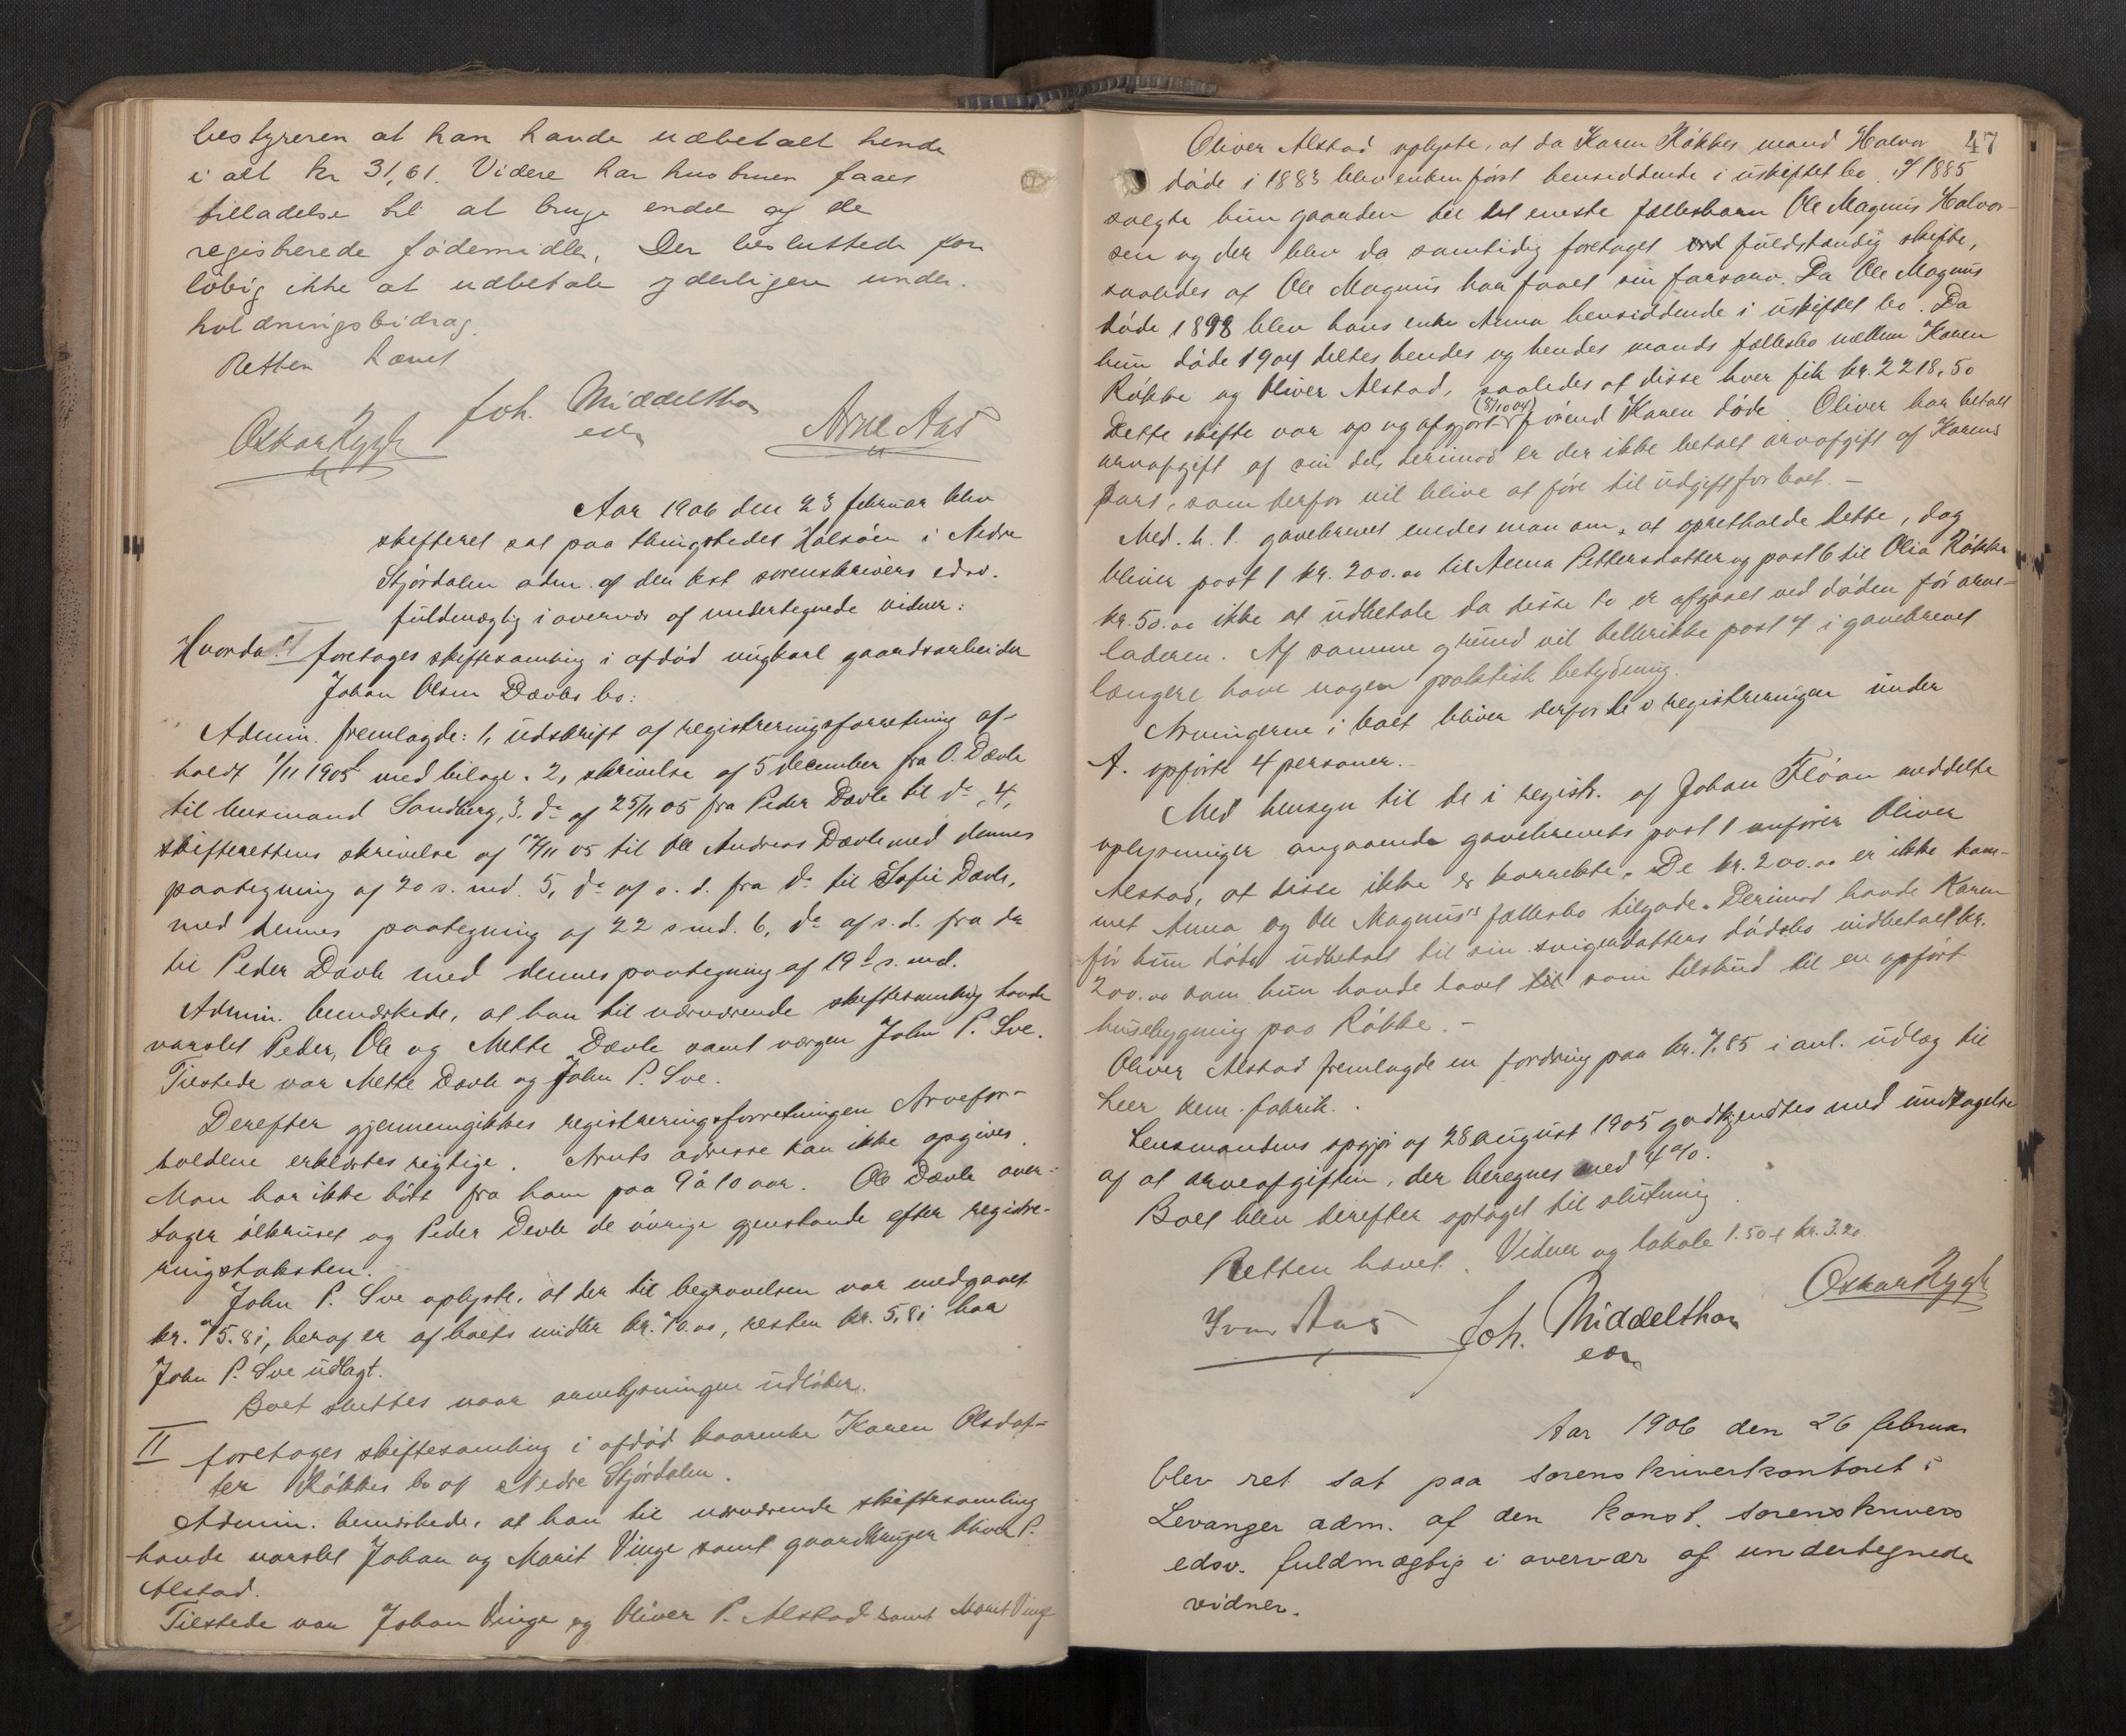 bestyreren at han havde udbetalt hende
i alt kr 31,61. Videre har hustruen faaet
tilladelse til at bruge endel af de
registrerede födemidler. Der besluttedes for
löbig ikke at udbetale yderligere under-
holdningsbidrag.
Retten hævet
Joh. Middelthon
edsv
Oskar Rygh Arne Aas
Aar 1906 den 23 februar blev
skifteret sat paa thingstedet Halsöen i Nedre
Stjördalen adm. af den kst sorenskrivers edsv.
fuldmægtig i overvær af undertegnede vidner:
Hvorda: I foretages skiftesamling i afdöd ungkarl gaardsarbeider
Johan Olsen Dævles bo:
Admin. fremlagde: 1, udskrift af registreringsforretning af-
holdt 1/11 1905 med bilage. 2, skrivelse af 5 december fra O. Dævle
til lensmand Sandberg, 3. do af 25/11 05 fra Peder Dævle til do, 4,
skifterettens skrivelse af 17/11 05 til Ole Andreas Dævle med dennes
paategning af 20 s. md. 5, do af s. d. fra do til Sofie Dævle,
med dennes paategning af 22 s md. 6, do af s. d. fra do
til Peder Dævle med dennes paategning af 19d s. md.
Admin. bemærkede, at han til nærværende skiftesamling havde
varslet Peder, Ole og Mette Dævle samt værgen John P. Sve.
Tilstede var Mette Dævle og John P. Sve.
Derefter gjennemgikkes registreringsforretningen Arvefor-
holdene erklærtes rigtige. Arnts adresse kan ikke opgives.
Man har ikke hört fra ham paa 9 à 10 aar. Ole Dævle over-
tager ölkruset og Peder Devle de övrige gjenstande efter registre-
ringstaksten.
John P. Sve oplyste, at der til begravelsen var medgaaet
kr. 75.81, heraf er af boets midler kr. 70.00, resten kr. 5,81 har
John P. Sve udlagt.
Boet sluttes naar arvelysningen udlöber.
II foretages skiftesamling i afdöd kaarenke Karen Olsdat-
ter Rökkes bo af Nedre Stjördalen.
Admin. bemærkede, at han til nærværende skiftesamling
havde varslet Johan og Marit Vinge samt gaardbruger Oliver P.
Alstad.
Tilstede var Johan Vinge og Oliver P. Alstad samt Marit Vinge
47
Oliver Alstad oplyste, at da Karen Rökkes mand Halvor
döde i 1883 blev enken först hensiddende i uskiftet bo. I 1885
solgte hun gaarden til det eneste fællesbarn Ole Magnus Halvor-
sen og der blev da samtidig foretaget fuldstændig skifte,
saaledes at Ole Magnus har faaet sin farsarv. Da Ole Magnus
döde 1898 blev hans enke Anna hensiddende i uskiftet bo. Da
hun döde 1904 deltes hendes og hendes mands fællesbo mellem Karen
Rökke og Oliver Alstad, saaledes at disse hver fik kr. 2218,50
(8/10 04)
Dette skifte var op og afgjort förend Karen döde. Oliver har betalt
arveafgift af sin del, derimod er der ikke betalt arvafgift af Karens
part, som derfor vil blive at före til udgift for boet. –
Med. h. t. gavebrevet enedes man om, at opretholde dette, dog
bliver post 1 kr. 200.00 til Anna Pettersdatter og post 6 til Olia Rökke
kr. 50.00 ikke at udbetale da disse to er afgaaet ved döden för arve-
laderen. Af samme grund vil hellerikke post 7 i gavebrevet
længere have nogen praktisk betydning.
Arvingerne i boet bliver derfor de i registreringen under
A. opförte 4 personer. –
Med hensyn til de i registr. af Johan Flöan meddelte
oplysninger angaaende gavebrevets post 1 anförer Oliver
Alstad, at disse ikke er korrekte. De kr. 200.00 er ikke kom-
met Anna og Ole Magnus's fællesbo tilgode. Derimod havde Karen
för hun döde udbetalt til sin svigerdatters dödsbo indbetalt kr.
200.00 som hun havde lovet til som tilskud til en opfört
husebygning paa Rökke. –
Oliver Alstad fremlagde en fordring paa kr. 7.85 i anl. udlæg til
Leer kem. fabrik.
Lensmandens opgjör af 28 august 1905 godkjendtes med undtagelse
af at arveafgiften, der beregnes med 4 %.
Boet blev derefter optaget til slutning.
Retten hævet. Vidner og lokale 1.50 + kr. 3.20
Oskar Rygh
Ivar Aas Joh. Middelthon
edsv
Aar 1906 den 26 februar
blev ret sat paa sorenskriverkontoret i
Levanger adm. af den konst. sorenskrivers
edsv. fuldmægtig i overvær af undertegnede
vidner.